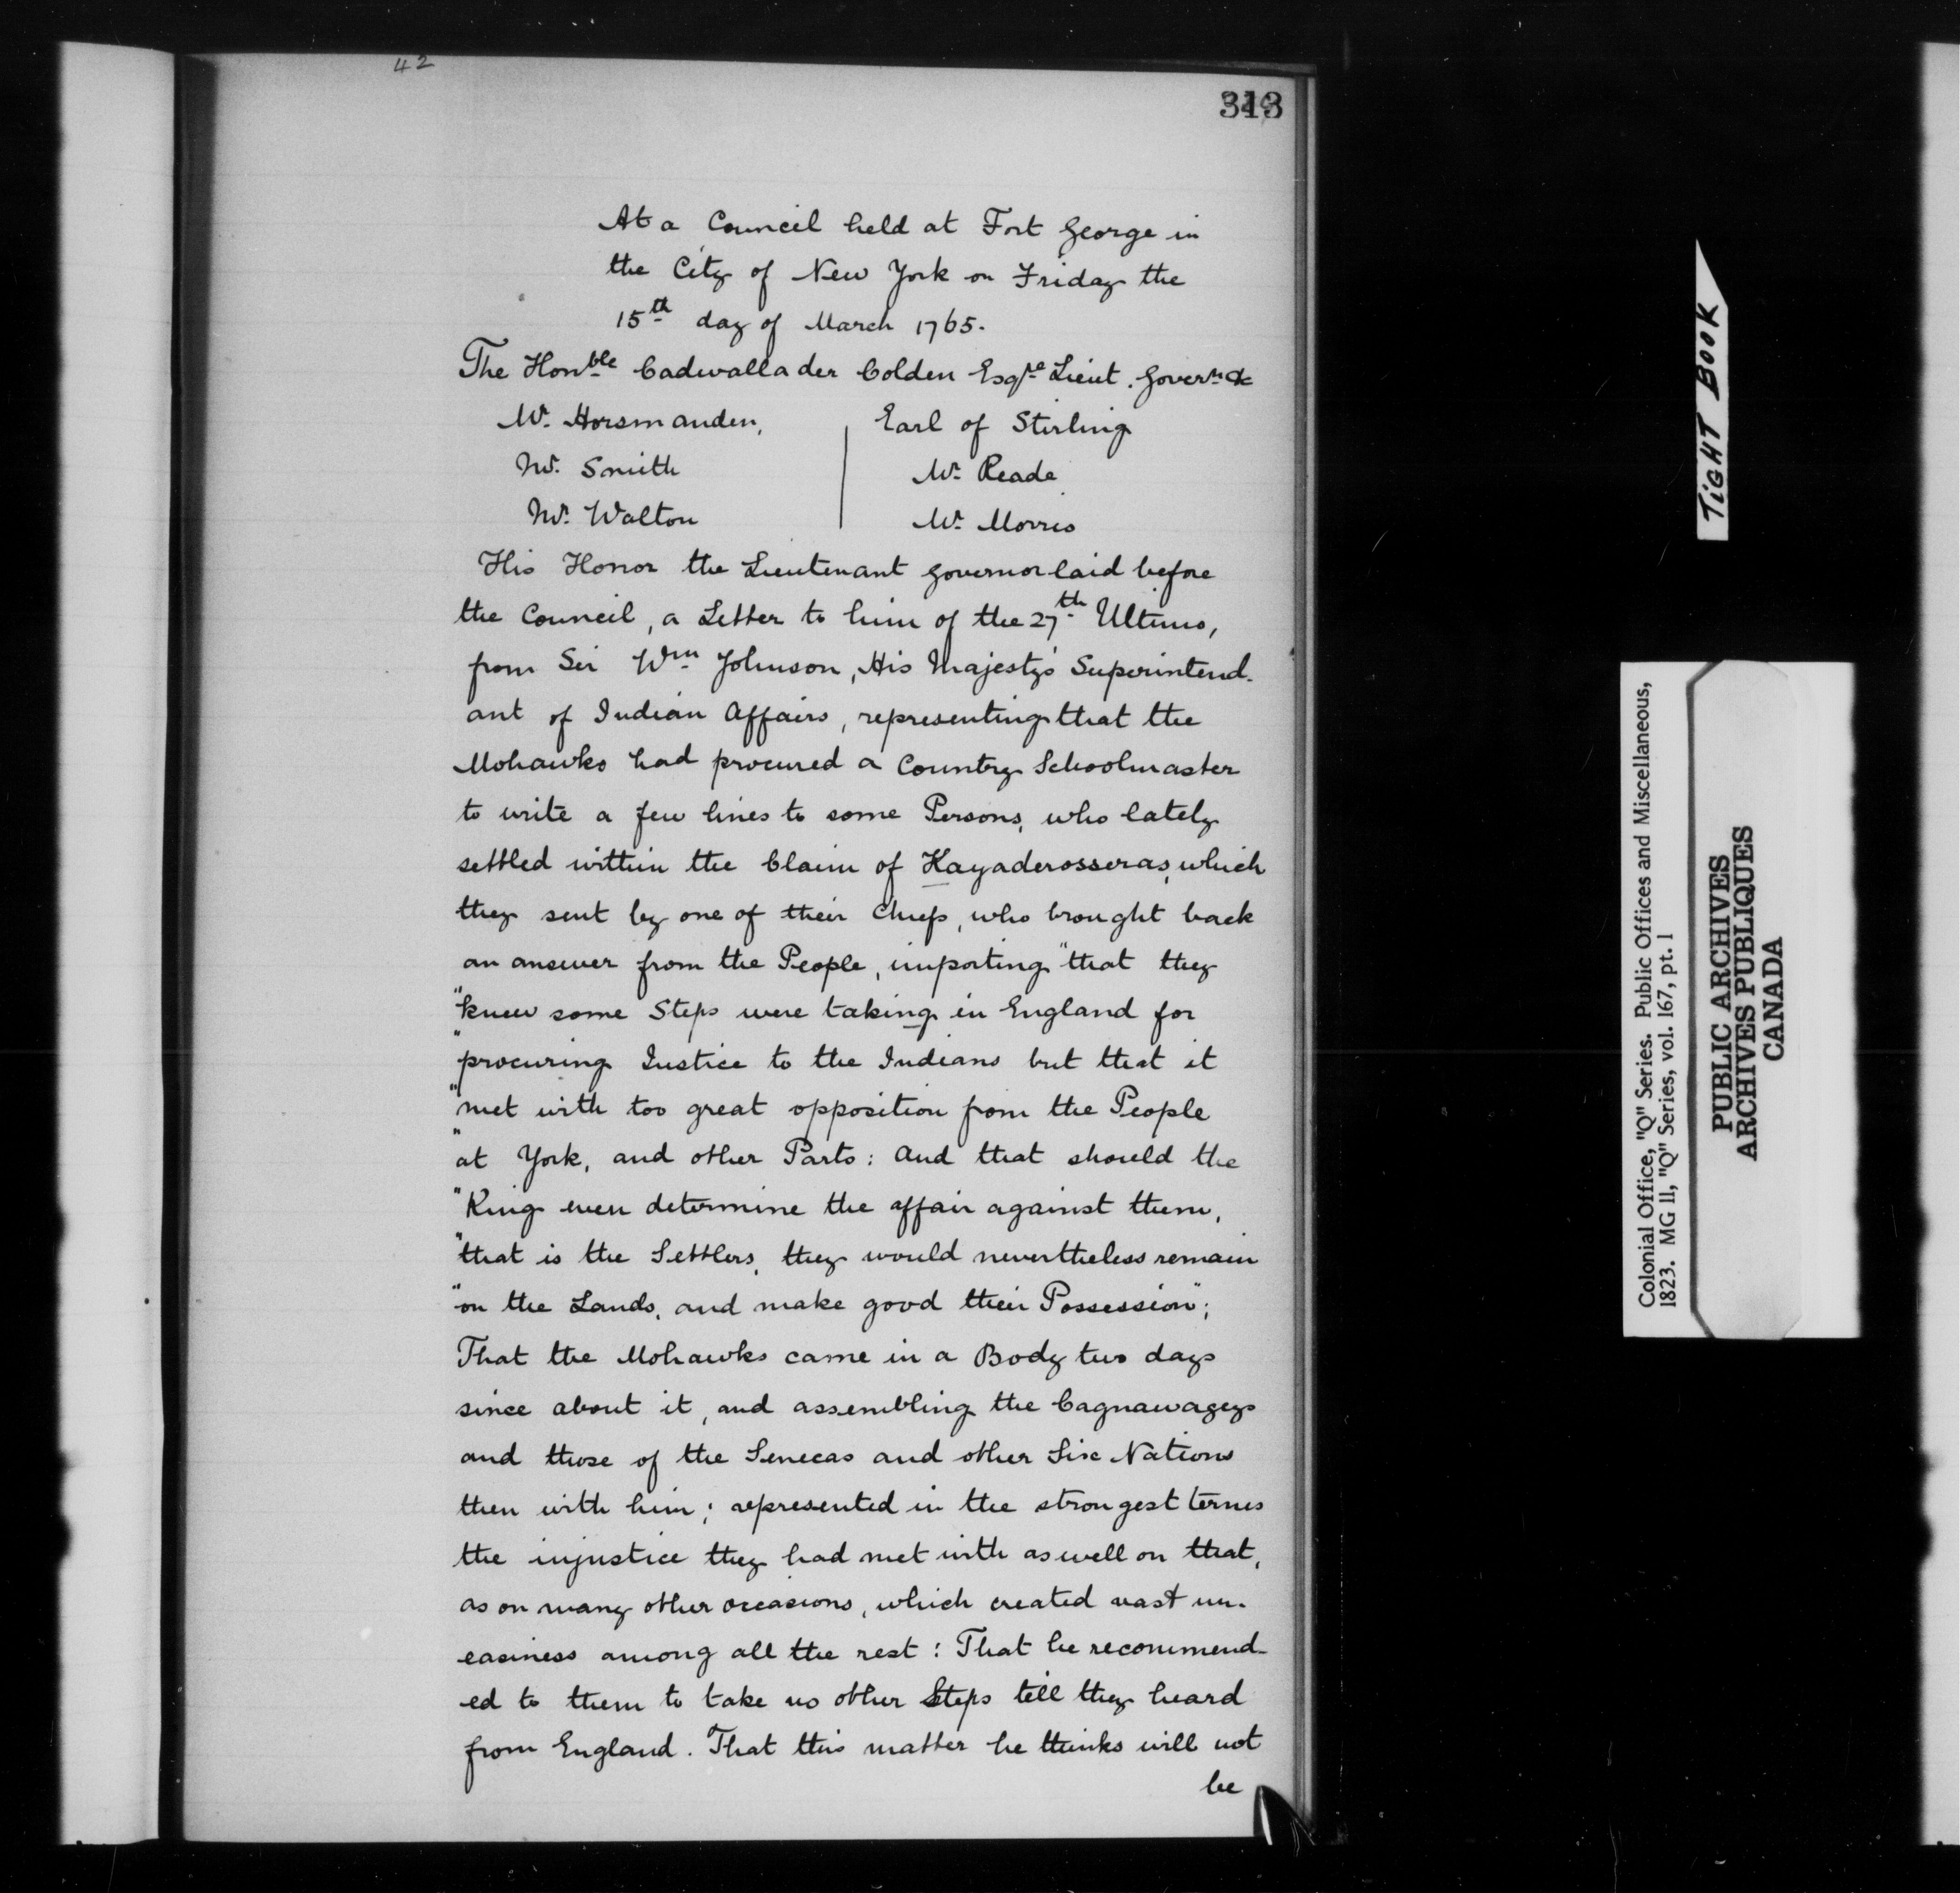 42
313
At a Council held at Fort George in
the City of New York on Friday the
15th day of March 1765.
The Honble Cadwallader Colden Esqre Lieut. Governr &c
Mr. Horsmanden,
Mr. Smith
Mr. Walton
Earl of Stirling
Mr. Reade
Mr. Morris
His Honor the Lieutenant Governor laid before
the Council, a Letter to him of the 27th Ultimo,
from Sir Wm Johnson, His Majesty's Superintend-
ant of Indian Affairs, representing that the
Mohawks had procured a Country Schoolmaster
to write a few lines to some Persons, who lately
settled within the Claim of Kayaderosseras, which
they sent by one of their Chiefs, who brought back
an answer from the People, importing "that they
"knew some Steps were taking in England for
"procuring Justice to the Indians but that it
"met with too great opposition from the People
"at York, and other Parts: And that should the
"King even determine the affair against them,
"that is the Settlers, they would nevertheless remain
"on the Lands, and make good their Possession";
That the Mohawks came in a Body two days
since about it, and assembling the Cagnawageys
and those of the Senecas and other Six Nations
then with him; represented in the strongest terms
the injustice they had met with as well on that,
as on many other occasions, which created vast un-
easiness among all the rest: That he recommend-
ed to them to take no other Steps till they heard
from England. That this matter he thinks will not
be
TIGHT BOOK
Colonial Office, "Q" Series. Public Offices and Miscellaneous,
1823. MG 11, "Q" Series, vol. 167, pt. 1
PUBLIC ARCHIVES
ARCHIVES PUBLIQUES
CANADA